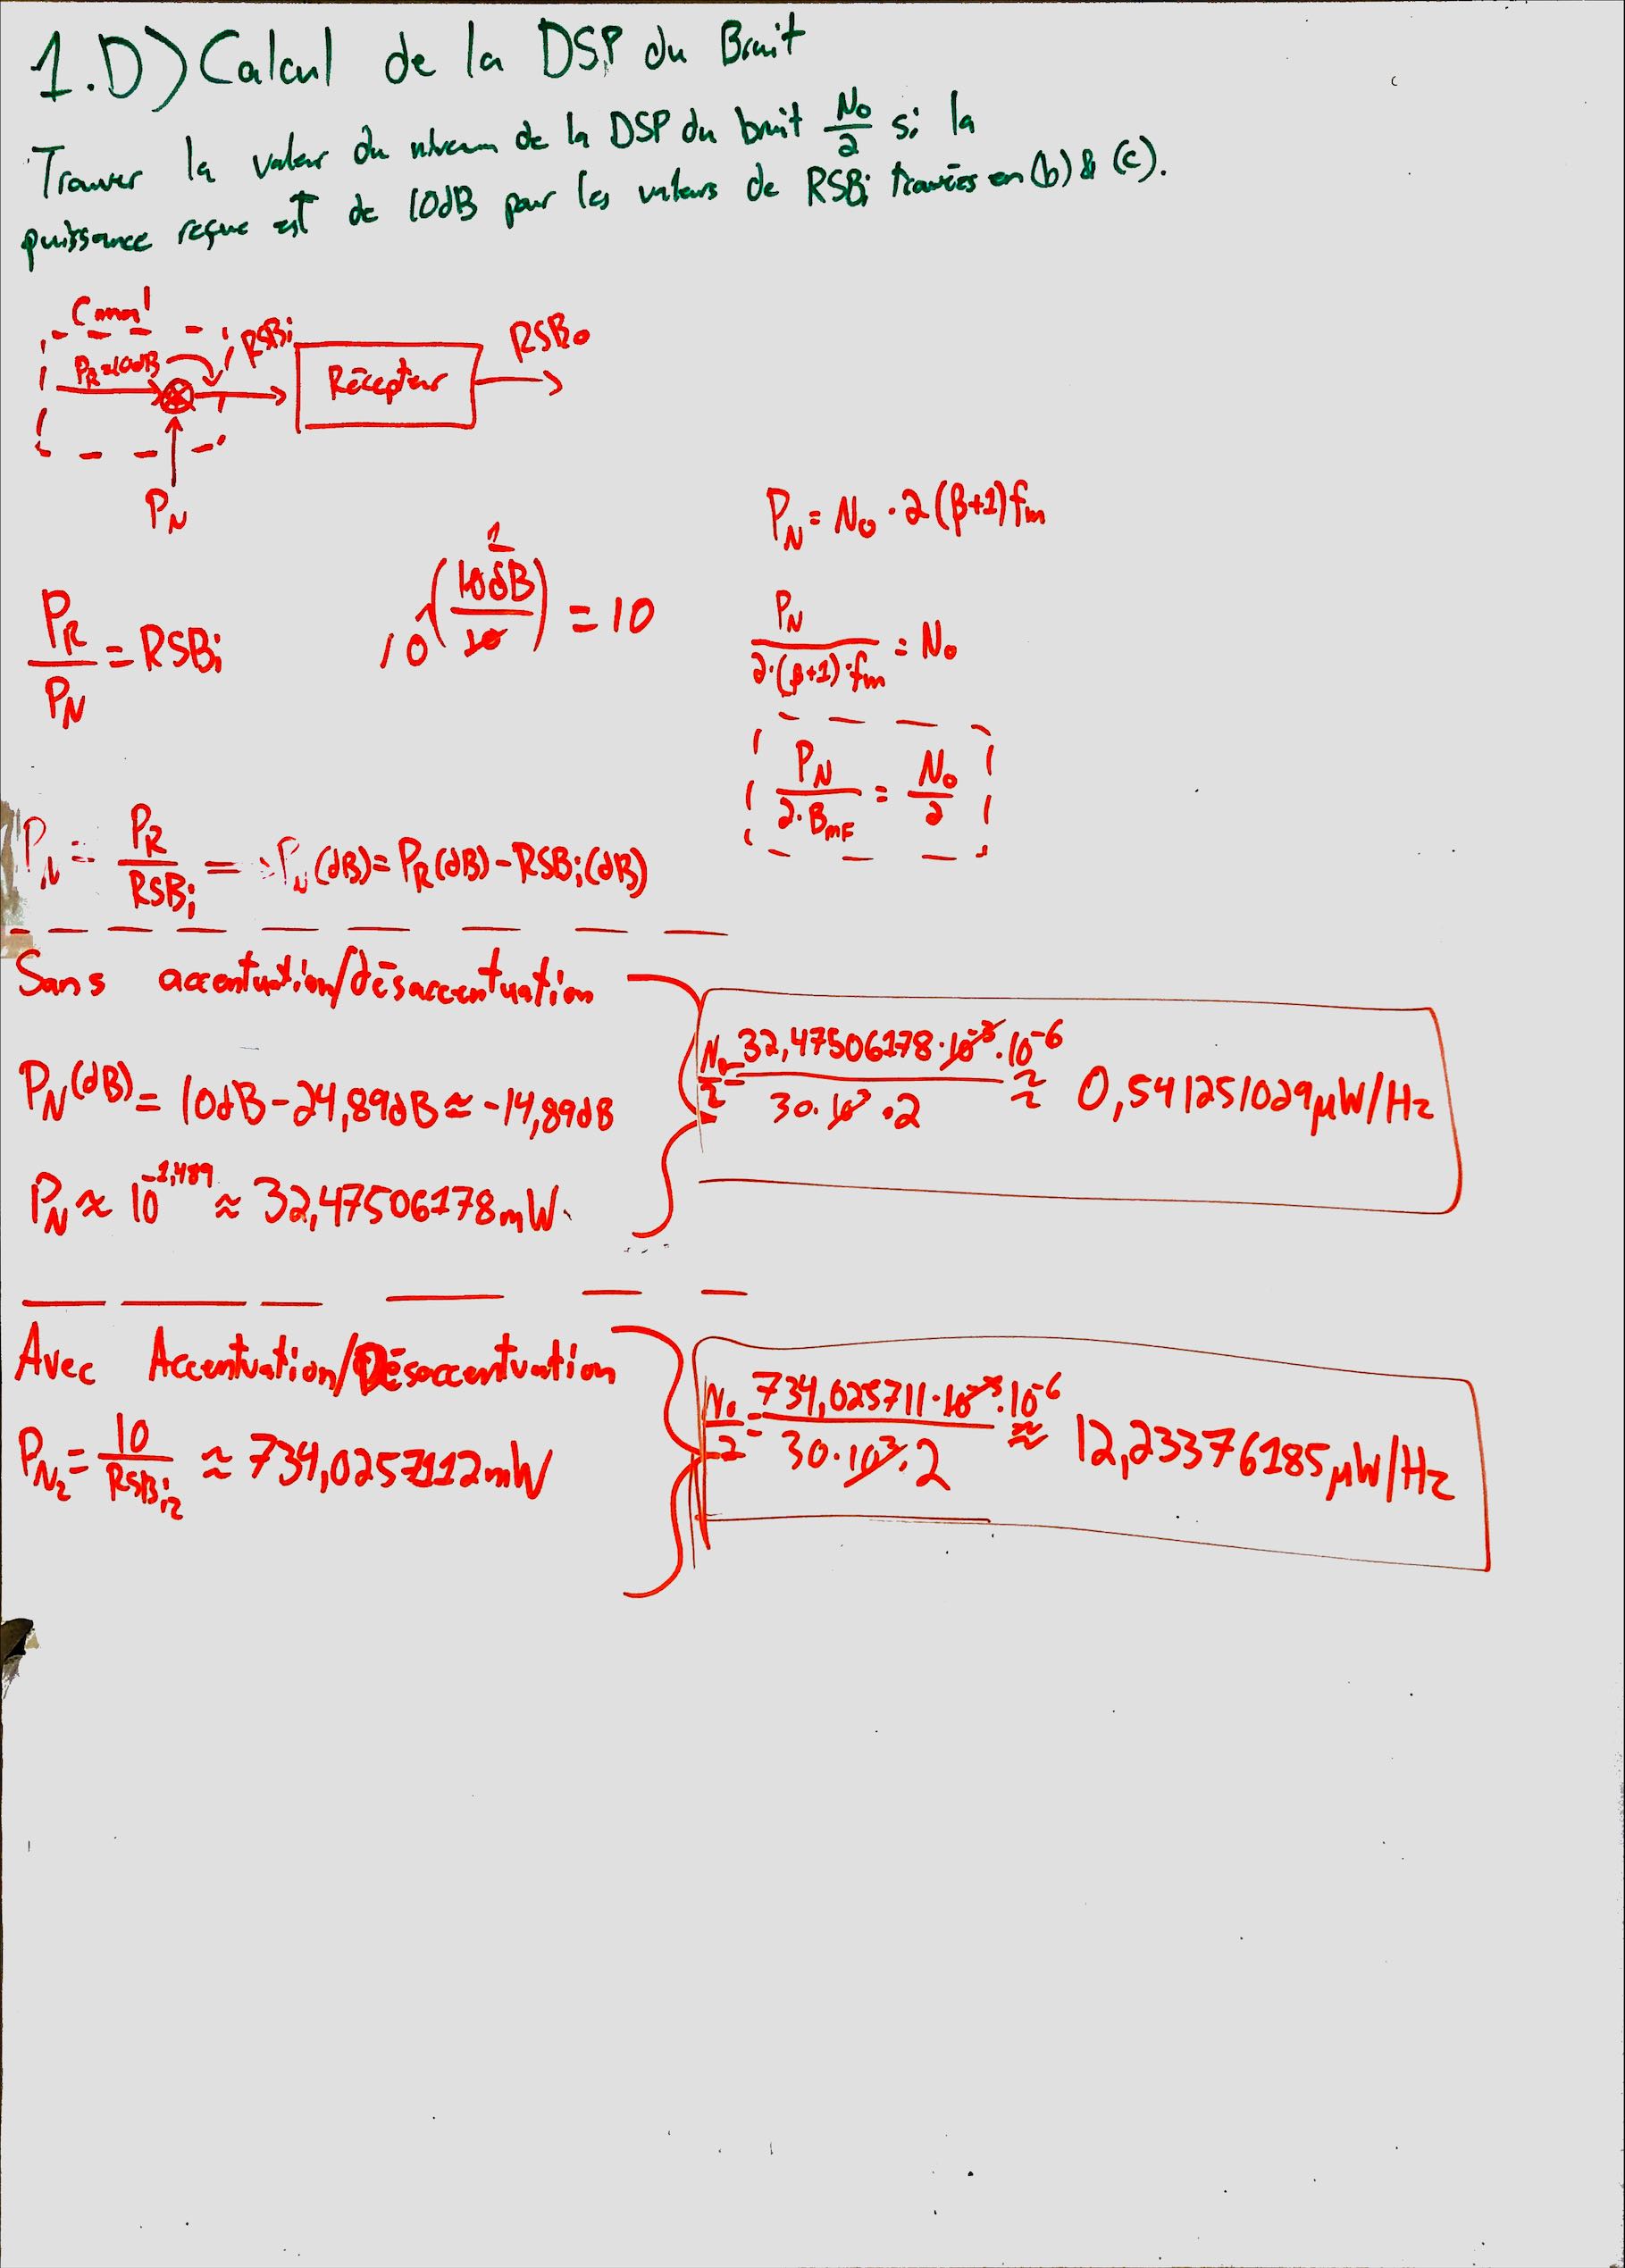 1.D) Calcul de la DSP du Bruit
Trouver la valeur du niveau de la DSP du bruit N₀/2 si la
puissance reçue est de 10dB pour les valeurs de RSBi trouvées en (b) & (c).
Canal
PR=10dB
RSBi
Récepteur
RSB₀
PN
PN = N₀ · 2(β+1)fm
PR/PN = RSBi
10^(10dB/10) = 10
1
PN/(2·(β+1)·fm) = N₀
PN/(2·BMF) = N₀/2
PN = PR/RSBi = PN(dB) = PR(dB) - RSBi(dB)
Sans accentuation/désaccentuation
PN(dB) = 10dB - 24,89dB ≈ -14,89dB
PN ≈ 10^-1,489 ≈ 32,47506178mW
N₀/2 = 32,47506178·10^-3·10^-6/(30·10^3·2) ≈ 0,541251029µW/Hz
Avec Accentuation/Désaccentuation
PN₂ = 10/RSBi₂ ≈ 734,0257112mW
N₀/2 = 734,025711·10^-3·10^-6/(30·10^3·2) ≈ 12,23376185µW/Hz